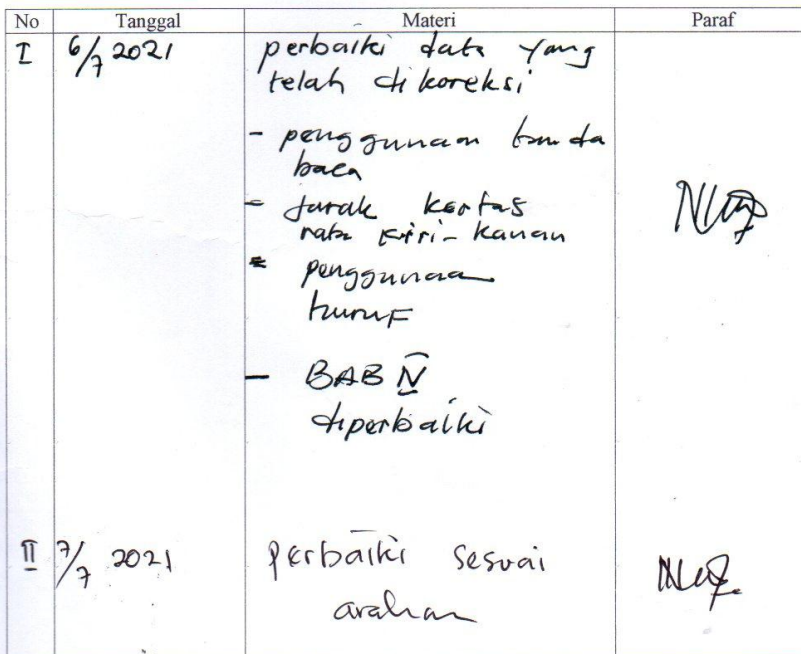 No Tanggal Materi Paraf
I 6/7 2021 perbaiki data yang
telah dikoreksi
- penggunaan tanda
baca
- Jarak kertas
rata kiri-kanan
- penggunaan
huruf
- BAB IV
diperbaiki
II 7/7 2021 perbaiki sesuai
arahan